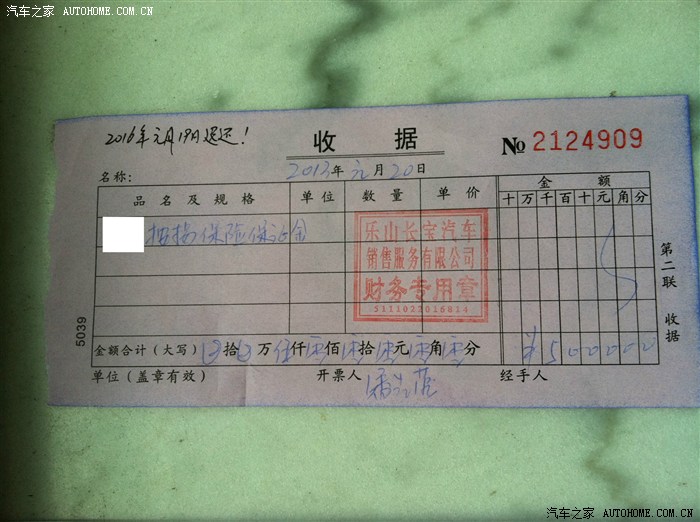 汽车之家 AUTOHOME.COM.CN
2016年元月19日退还！
收据
№ 2124909
2013年元月20日
名称：
品名及规格 单位 数量 单价 金额
十万千百十元角分
按揭保险保证金
乐山长宝汽车
销售服务有限公司
财务专用章
5111022016814
第二联 收据
5039
金额合计（大写） 拾 万伍仟零佰零拾零元零角零分 ¥500000
单位（盖章有效） 开票人 经手人
汽车之家 AUTOHOME.COM.CN